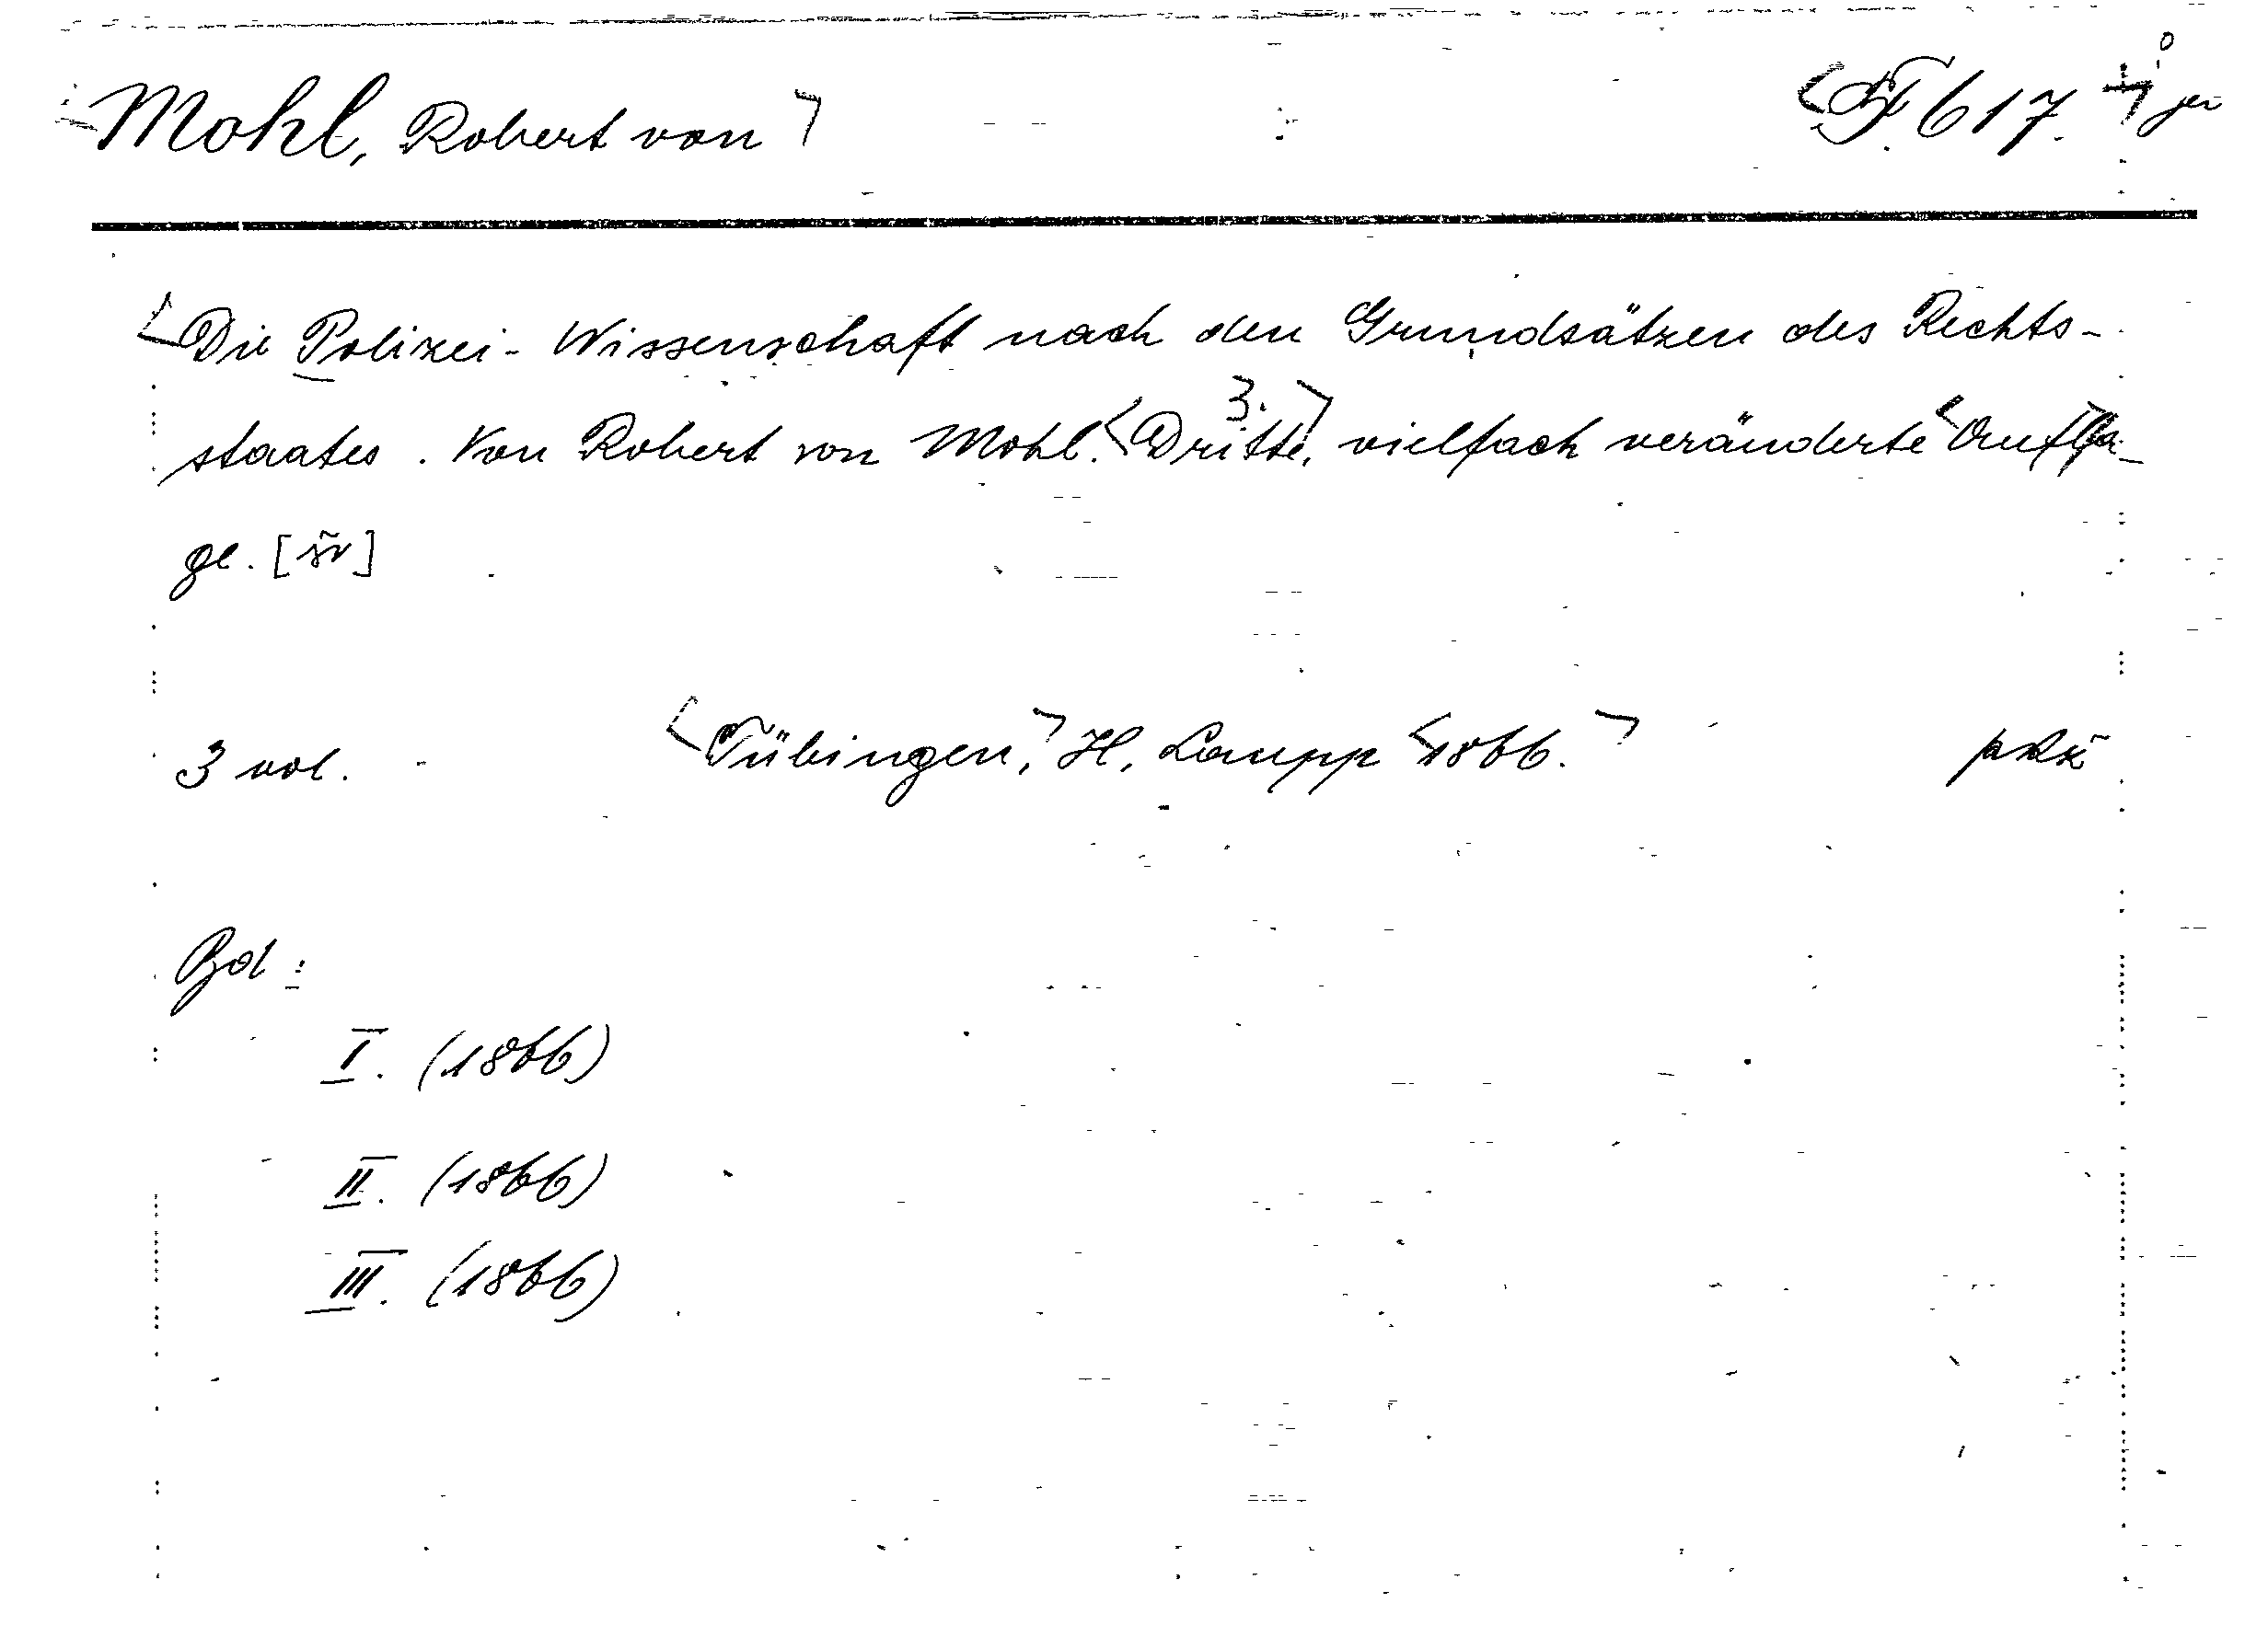 Mohl, Robert von
F 617.
Die Polizei-Wissenschaft nach den Grundsätzen des Rechts-
3.
staates. Von Robert von Mohl. Dritte, vielfach veränderte Aufla-
ge. [šv]
3 vol. Tübingen, H. Laupp 1866.
I. (1866)
II. (1866)
III. (1866)